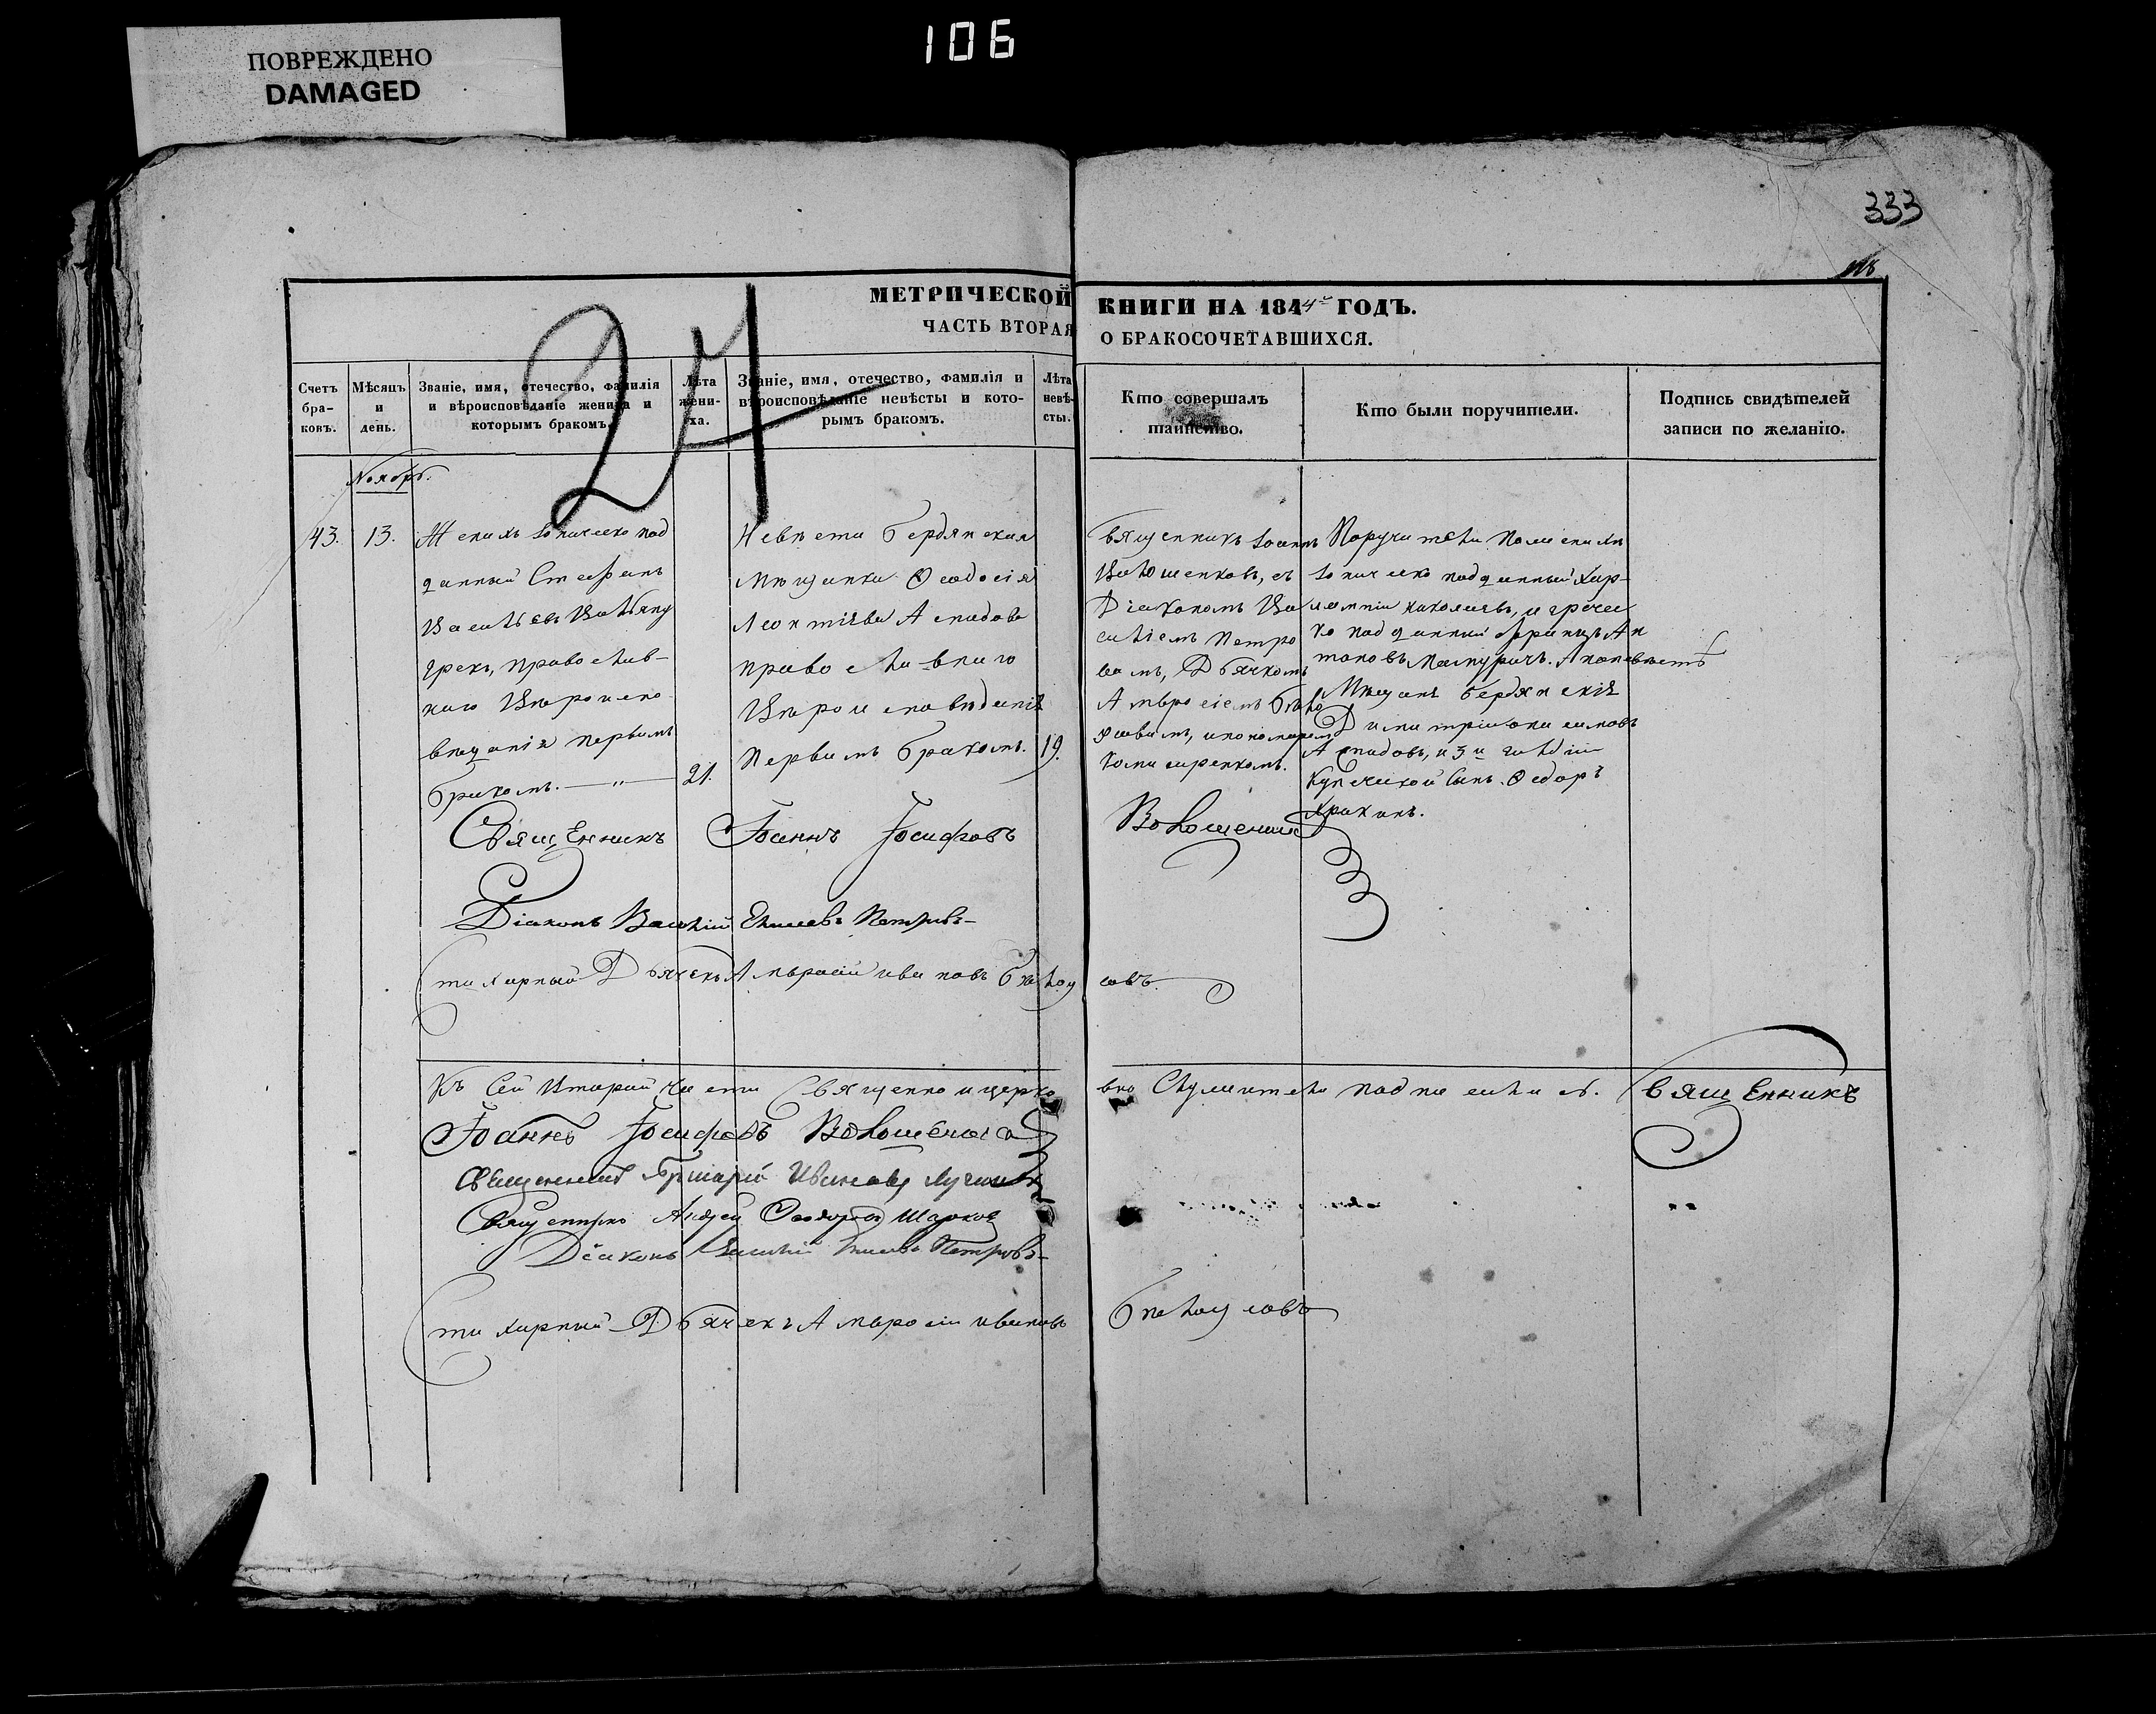 ПОВРЕЖДЕНО
DAMAGED
106
333
МЕТРИЧЕСКОЙ КНИГИ НА 1844й ГОДЪ.
ЧАСТЬ ВТОРАЯ О БРАКОСОЧЕТАВШИХСЯ.
24
Счетъ
бра-
ковъ.
Мѣсяцъ
и
день.
Званіе, имя, отечество, фамилія
и вѣроисповѣданіе жениха и
которымъ бракомъ.
Лѣта
жени-
ха.
Званіе, имя, отечество, фамилія и
вѣроисповѣданіе невѣсты и кото-
рымъ бракомъ.
Лѣта
невѣ-
сты.
Кто совершалъ
таинство.
Кто были поручители.
Подпись свидѣтелей
записи по желанію.
Ноябрь.
43.
13.
Женихъ Іоническо под
данный Стефанъ
Васильевъ
грекъ, православ-
наго Вѣроиспо
вѣданія первымъ
бракомъ. — " —
21.
Невѣста Бердянская
Мѣщанка Феодосія
Леонтіева
православнаго
Вѣроисповѣданія
Первымъ бракомъ.
19.
Священникъ Іоаннъ
Волошенковъ, съ
Діакономъ Ва
силіемъ Петро
вымъ, Дьячкомъ
Амвросіемъ Бѣло
усовымъ, и пономаремъ
Поручители По женихѣ
Іоническо подданный Хар-
лампій Николаевъ, и грече
ско подданный Францъ Ан
тоновъ А по невѣстѣ
Мѣщане Бердянскіе
Купеческой Сынъ Федоръ
Священникъ Іоаннъ Іосифовъ Волошенко
Діаконъ Василій Петровъ
Стихарный Дьячекъ Амвросій Ивановъ Бѣлоусовъ.
Къ Сей Второй Части Священно и церковно Служители подписались. Священникъ
Іоаннъ Іосифовъ Волошенко
Священникъ Григорій Ивановъ
Священникъ Андрей Феодоровъ
Діаконъ Василій Петровъ
Стихарный Дьячекъ Амвросій Ивановъ Бѣлоусовъ